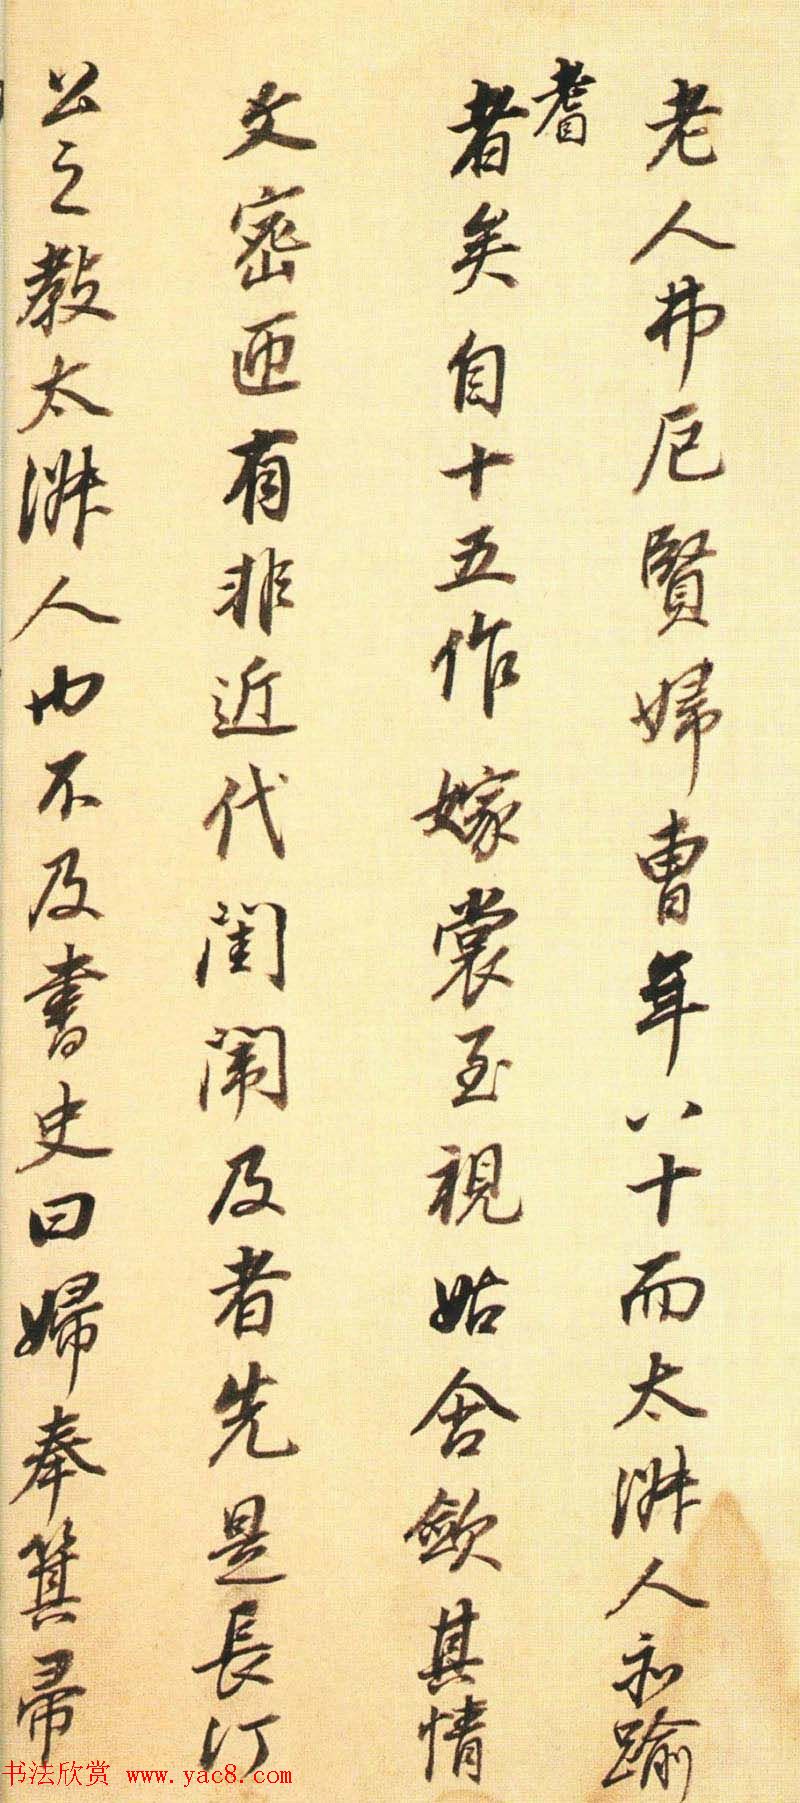 老人弗厄賢婦曹年八十而太淑人亦踰
耆
者矣自十五作嫁裳至視姑舍斂其情
文密匝有非近代閨闈及者先是長汀
公之教太淑人也不及書史曰婦奉箕帚
书法欣赏 www.yac8.com